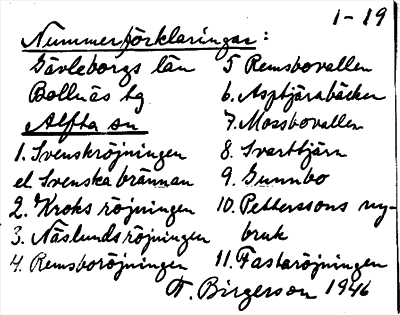 1-19
Nummerförklaringar:
Gävleborgs län
Bollnäs tg
Alfta sn
1. Svenskröjningen
el Svenska brännan
2. Kroks röjningen
3. Näslundsröjningen
4. Remsboröjningen
5 Remsbovallen
6. Asptjärnbäcken
7. Mossbovallen
8. Svarttjärn
9. Gunnbo
10. Petterssons ny-
bruk
11. Fastaröjningen
F. Birgerson 1946